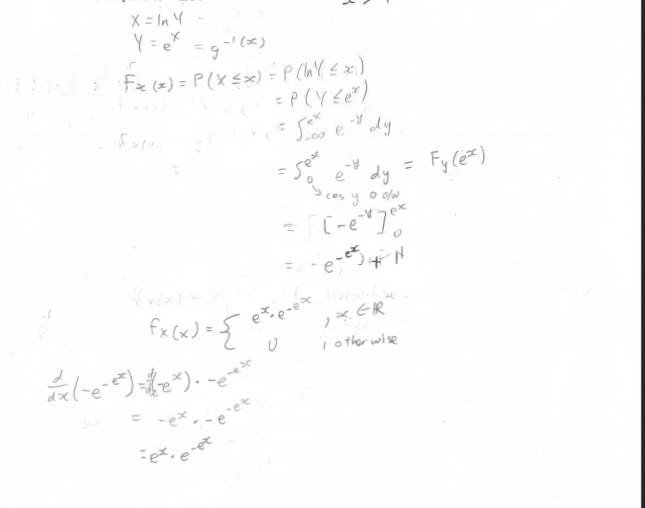 X = ln Y
Y = e^x = g^-1(x)
F_X(x) = P(X ≤ x) = P(lnY ≤ x)
= P(Y ≤ e^x)
= ∫_-∞^e^x e^-y dy
= ∫_0^e^x e^-y dy = F_y(e^x)
cos y 0 o/w
= [-e^-y]_0^e^x
= -e^-e^x + 1
f_X(x) = { e^x · e^-e^x , x ∈ ℝ
0 , otherwise
d/dx(-e^-e^x) = d/dx(-e^x) · -e^-e^x
= -e^x · -e^-e^x
= e^x · e^-e^x